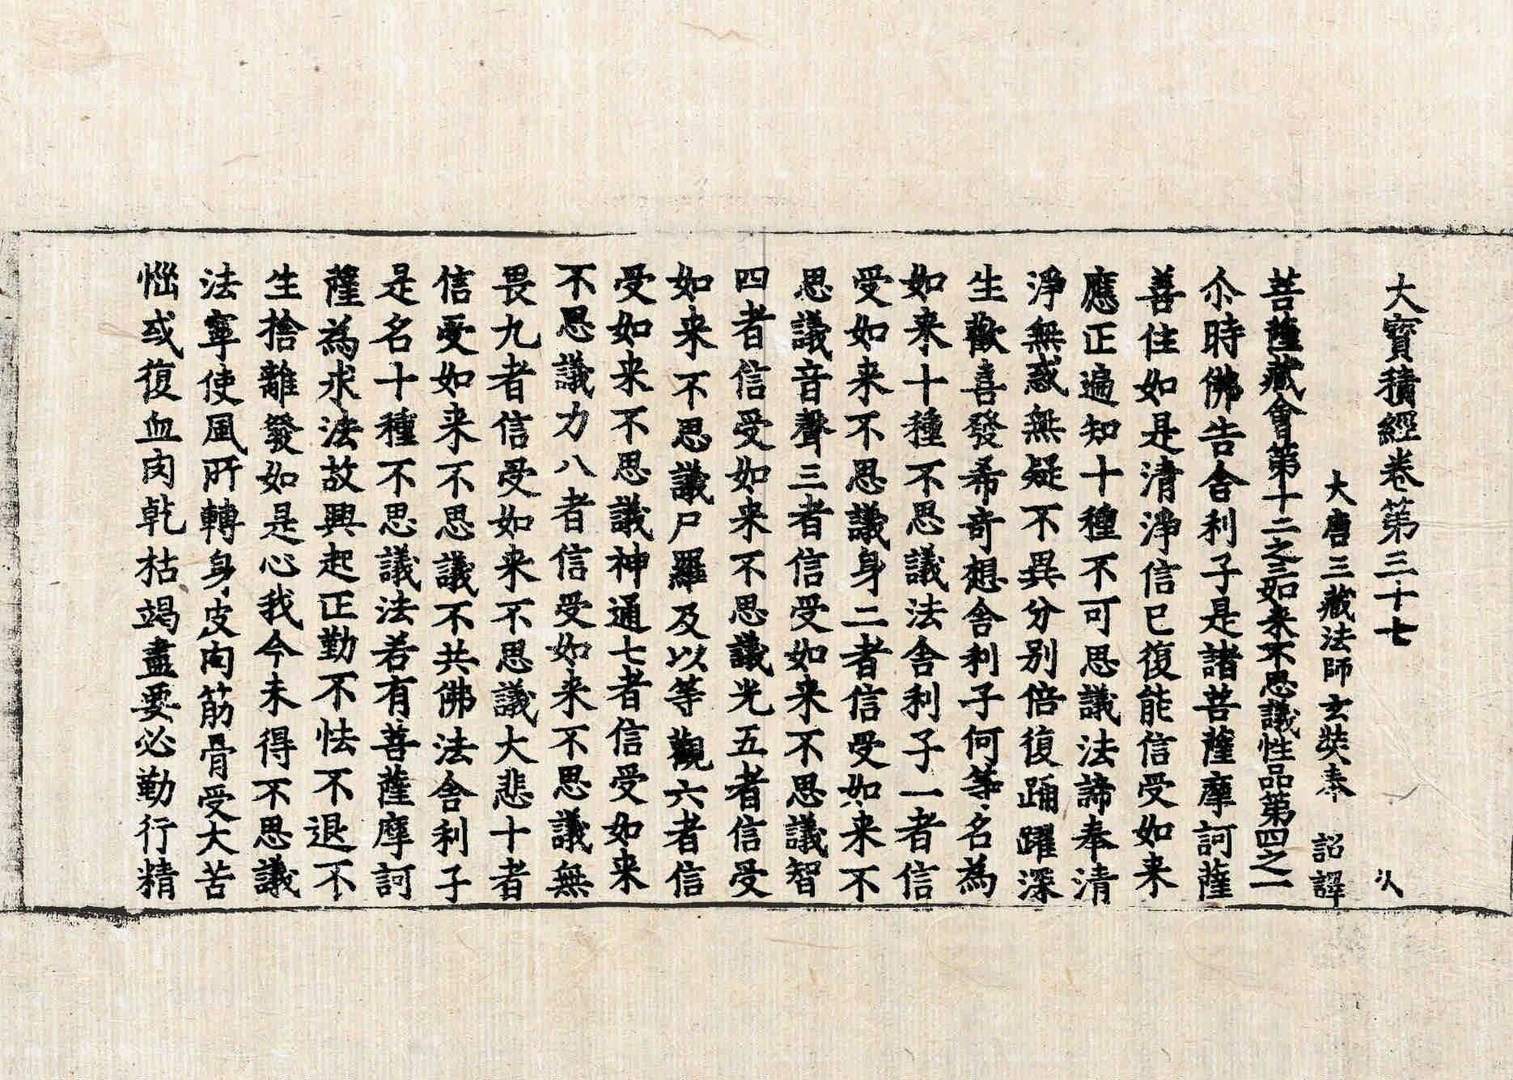 大寶積經卷第三十七
大唐三藏法師玄奘奉 詔譯
菩薩藏會第十二之三如来不思議性品第四之一
尒時佛告舍利子是諸菩薩摩訶薩
善住如是清淨信已復能信受如来
應正遍知十種不可思議法諦奉清
淨無惑無疑不異分別倍復踊躍深
生歡喜發希奇想舍利子何等名為
如来十種不思議法舍利子一者信
受如来不思議身二者信受如来不
思議音聲三者信受如来不思議智
四者信受如来不思議光五者信受
如来不思議尸羅及以等觀六者信
受如来不思議神通七者信受如来
不思議力八者信受如来不思議無
畏九者信受如来不思議大悲十者
信受如来不思議不共佛法舍利子
是名十種不思議法若有菩薩摩訶
薩為求法故興起正勤不怯不退不
生捨離發如是心我今未得不思議
法寧使風所轉身皮肉筋骨受大苦
惱或復血肉乾枯竭盡要必勤行精